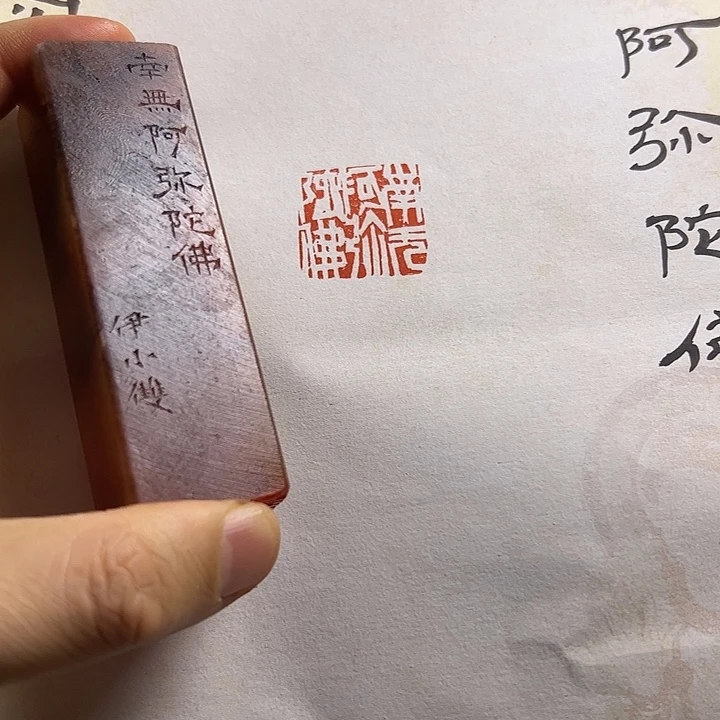 南無阿弥陀佛
伊小雙
南无阿弥陀佛
阿弥陀